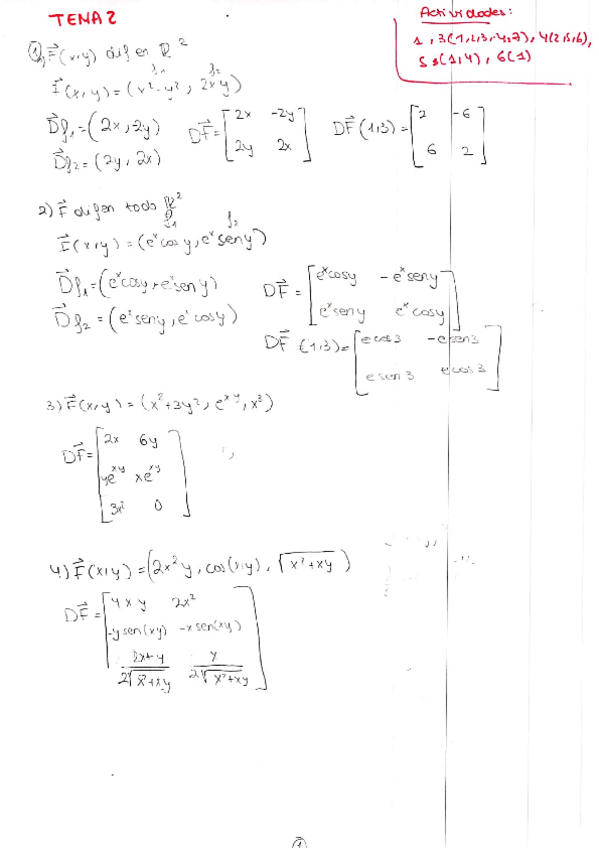 TEMA 2
Actividades:
1, 3(1,2,3,4,7), 4(2,5,6),
5 (1,4), 6(1)
1) F⃗(x,y) dif en ℝ²
f₁ f₂
F⃗(x,y)=(x²-y², 2xy)
D⃗f₁=(2x,-2y) DF⃗=[2x -2y; 2y 2x] DF⃗(1,3)=[2 -6; 6 2]
D⃗f₂=(2y, 2x)
2) F⃗ dif en todo ℝ²
f₁ f₂
F⃗(x,y)=(eˣcosy, eˣseny)
D⃗f₁=(eˣcosy, -eˣseny) DF⃗=[eˣcosy -eˣseny; eˣseny eˣcosy]
D⃗f₂=(eˣseny, eˣcosy)
DF⃗(1,3)=[e cos3 -e sen3; e sen3 e cos3]
3) F⃗(x,y)=(x²+3y², e^xy, x³)
DF⃗=[2x 6y; ye^xy xe^xy; 3x² 0]
4) F⃗(x,y)=(2x²y, cos(xy), √(x²+xy))
DF⃗=[4xy 2x²; -y sen(xy) -x sen(xy); (2x+y)/(2√(x²+xy)) x/(2√(x²+xy))]
1